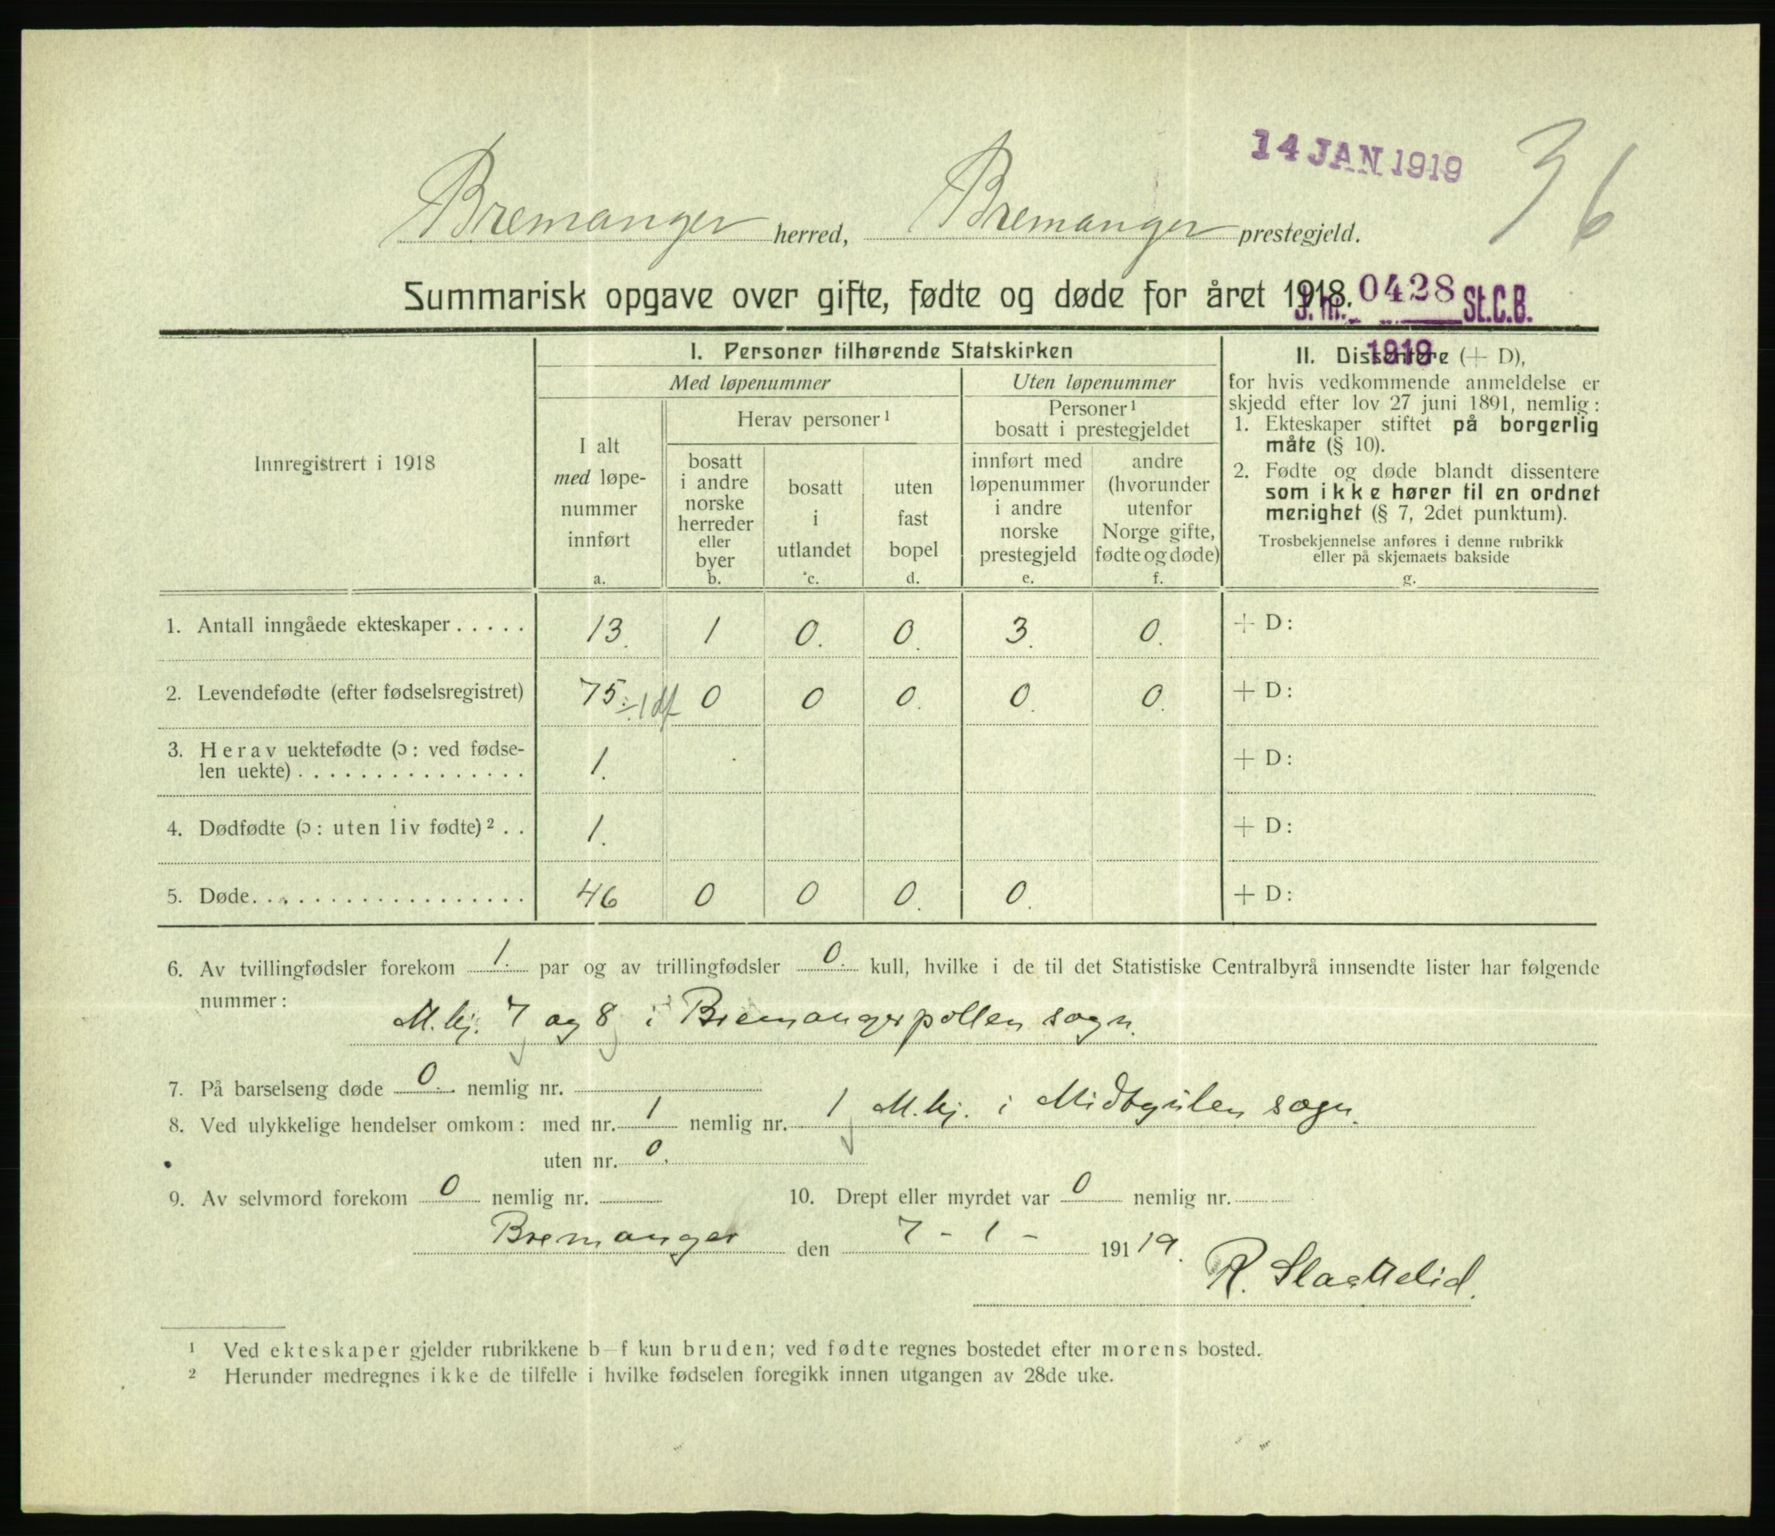 14 JAN 1919
36
Bremanger herred, Bremanger prestegjeld.
Summarisk opgave over gifte, fødte og døde for året 1918.
J. nr. 0428 St.C.B.
1919
Innregistrert i 1918
I. Personer tilhørende Statskirken
Med løpenummer
Uten løpenummer
I alt
med løpe-
nummer
innført
a.
Herav personer ¹
bosatt
i andre
norske
herreder
eller
byer
b.
bosatt
i
utlandet
c.
uten
fast
bopel
d.
Personer ¹
bosatt i prestegjeldet
innført med
løpenummer
i andre
norske
prestegjeld
e.
andre
(hvorunder
utenfor
Norge gifte,
fødte og døde)
f.
II. Dissentere (+ D),
for hvis vedkommende anmeldelse er
skjedd efter lov 27 juni 1891, nemlig :
1. Ekteskaper stiftet på borgerlig
måte (§ 10).
2. Fødte og døde blandt dissentere
som ikke hører til en ordnet
menighet (§ 7, 2det punktum).
Trosbekjennelse anføres i denne rubrikk
eller på skjemaets bakside
g.
1. Antall inngåede ekteskaper . . . . . 13. 1 0. 0. 3. 0. + D :
2. Levendefødte (efter fødselsregistret) 75. ÷ 1 df 0 0 0. 0. 0. + D :
3. Herav uektefødte (ɔ : ved fødse-
len uekte) . . . . . . . . . . . . . . . 1. + D :
4. Dødfødte (ɔ : uten liv fødte) ² . . 1. + D :
5. Døde. . . . . . . . . . . . . . . . . . 46 0 0 0. 0. + D :
6. Av tvillingfødsler forekom 1. par og av trillingfødsler 0. kull, hvilke i de til det Statistiske Centralbyrå innsendte lister har følgende
nummer : M.kj. 7 og 8 i Bremangerpollen sogn.
7. På barselseng døde 0. nemlig nr.
8. Ved ulykkelige hendelser omkom : med nr. 1 nemlig nr. 1 M.kj. i Midtgulen sogn.
uten nr. 0.
9. Av selvmord forekom 0 nemlig nr. 10. Drept eller myrdet var 0 nemlig nr.
Bremanger den 7 - 1 - 191 19.
R. Slaattelid.
¹ Ved ekteskaper gjelder rubrikkene b–f kun bruden; ved fødte regnes bostedet efter morens bosted.
² Herunder medregnes ikke de tilfelle i hvilke fødselen foregikk innen utgangen av 28de uke.